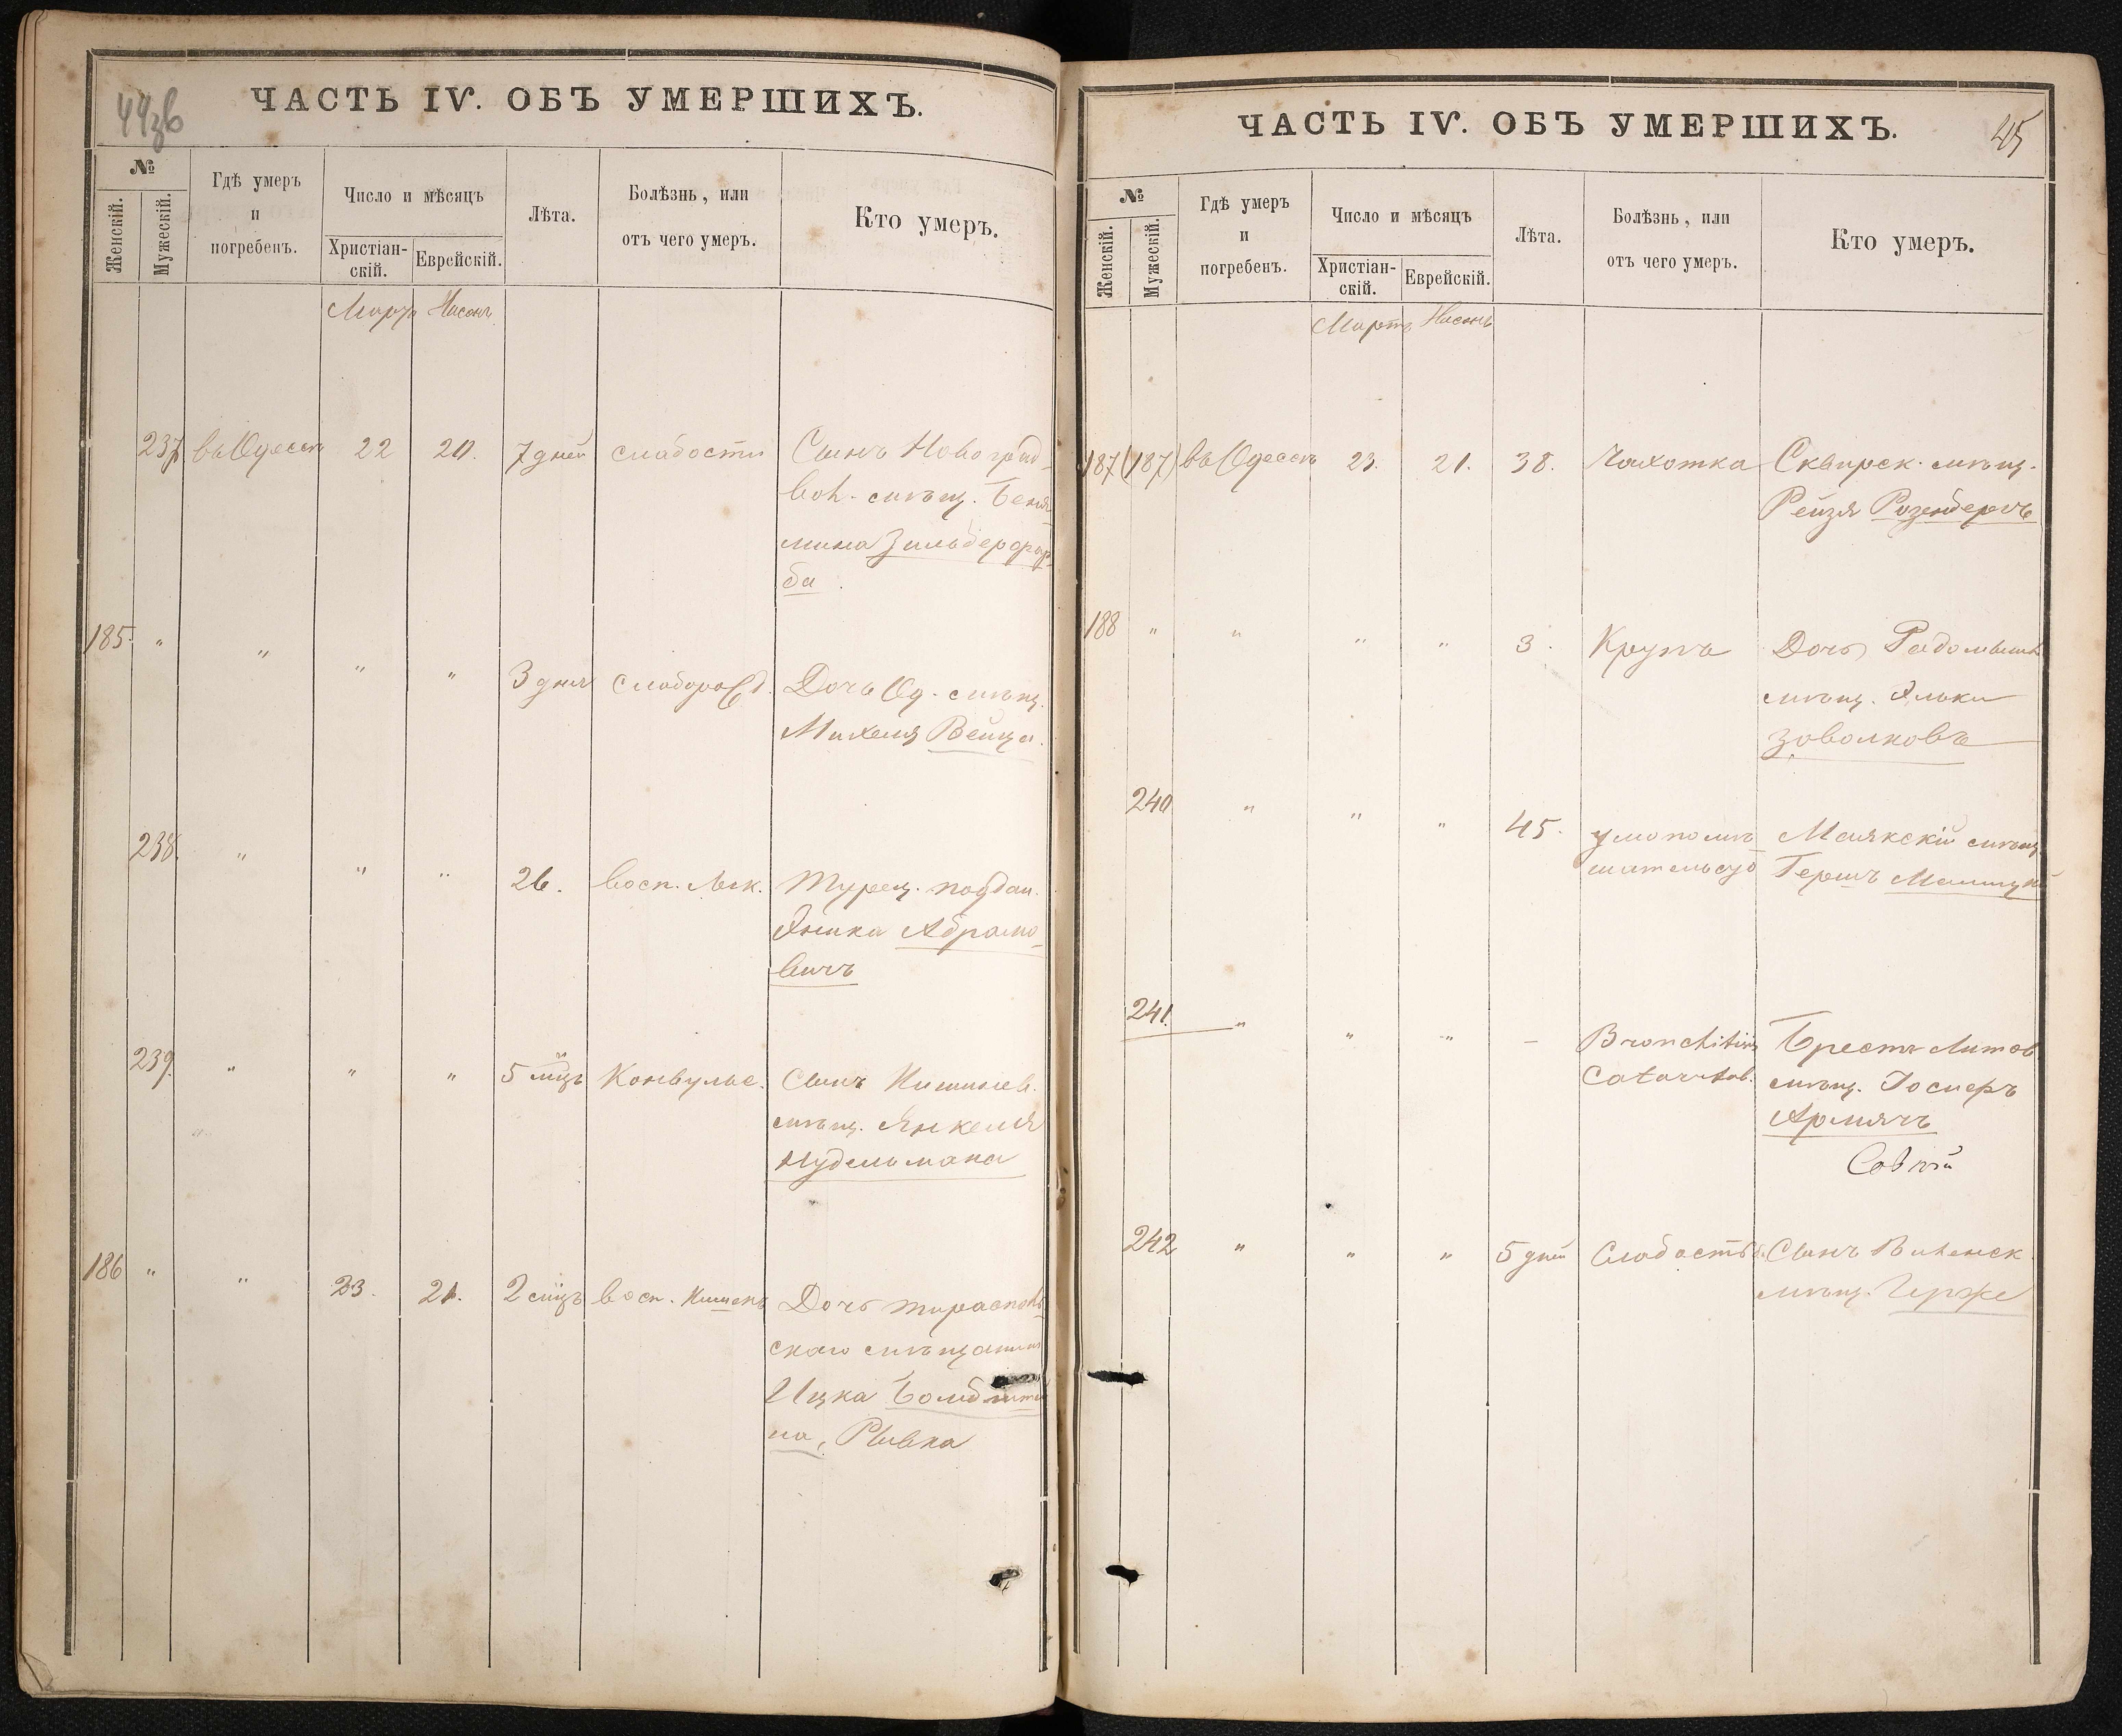 44зв
ЧАСТЬ IV. ОБЪ УМЕРШИХЪ.
№
Женскій.
Мужескій.
Гдѣ умеръ
и
погребенъ.
Число и мѣсяцъ
Христіан-
скій.
Еврейскій.
Лѣта.
Болѣзнь, или
отъ чего умеръ.
Кто умеръ.
Мартъ Нисонъ
237 въ Одессѣ 22 20. 7 дней слабости Сынъ Новоград-
вол. мѣщ. Беня-
мина Зильберфар-
ба.
185. " " " " 3 дня Дочь Од. мѣщ.
Михеля Вейца.
238. " " " 26. восп. лек. Турец. поддан.
Абрамо-
вичъ
239. " " " 5 мцъ Конвульс. Сынъ Кишинев.
мѣщ. Янкеля
Нудельмана
186 " " 23. 21. 2 мцъ восп. кишекъ Дочь тирасполь-
скаго мѣщанина
Ицка
на, Рывка
ЧАСТЬ IV. ОБЪ УМЕРШИХЪ.
45
№
Женскій.
Мужескій.
Гдѣ умеръ
и
погребенъ.
Число и мѣсяцъ
Христіан-
скій.
Еврейскій.
Лѣта.
Болѣзнь, или
отъ чего умеръ.
Кто умеръ.
Мартъ Нисонъ
187 (187) въ Одессѣ 23. 21. 38. Чахотка Сквирск. мѣщ.
Рейзя Розенбергъ
188 " " " " 3. Крупъ Дочь Радомысл.
мѣщ.
240 " " " 45. умопомѣ-
шательсто
Маякскій мѣщ.
Гершъ
241. " " " – Bronchitis
Catarrhal.
Брестъ Литов.
мѣщ. Іосифъ
242 " " " 5 дней Слабость Сынъ Виленск.
мѣщ.